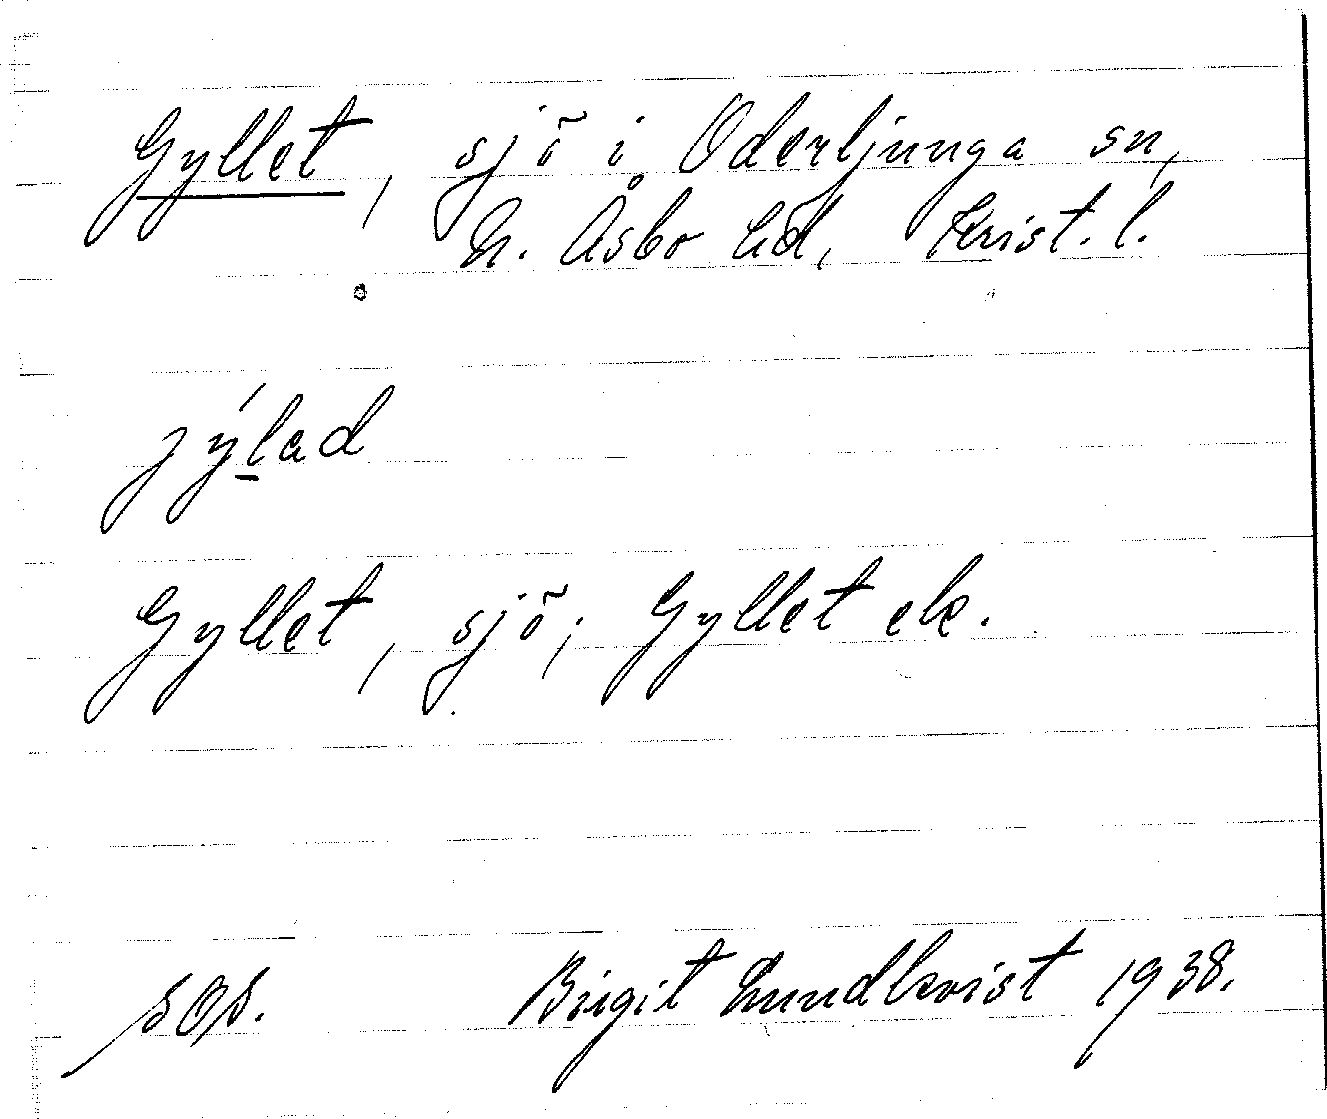 Gyllet, sjö i Oderljunga sn,
N. Åsbo hd, Krist. l.
jýlad
Gyllet, sjö; Gyllet ek.
SOS. Birgit Lundkvist 1938.